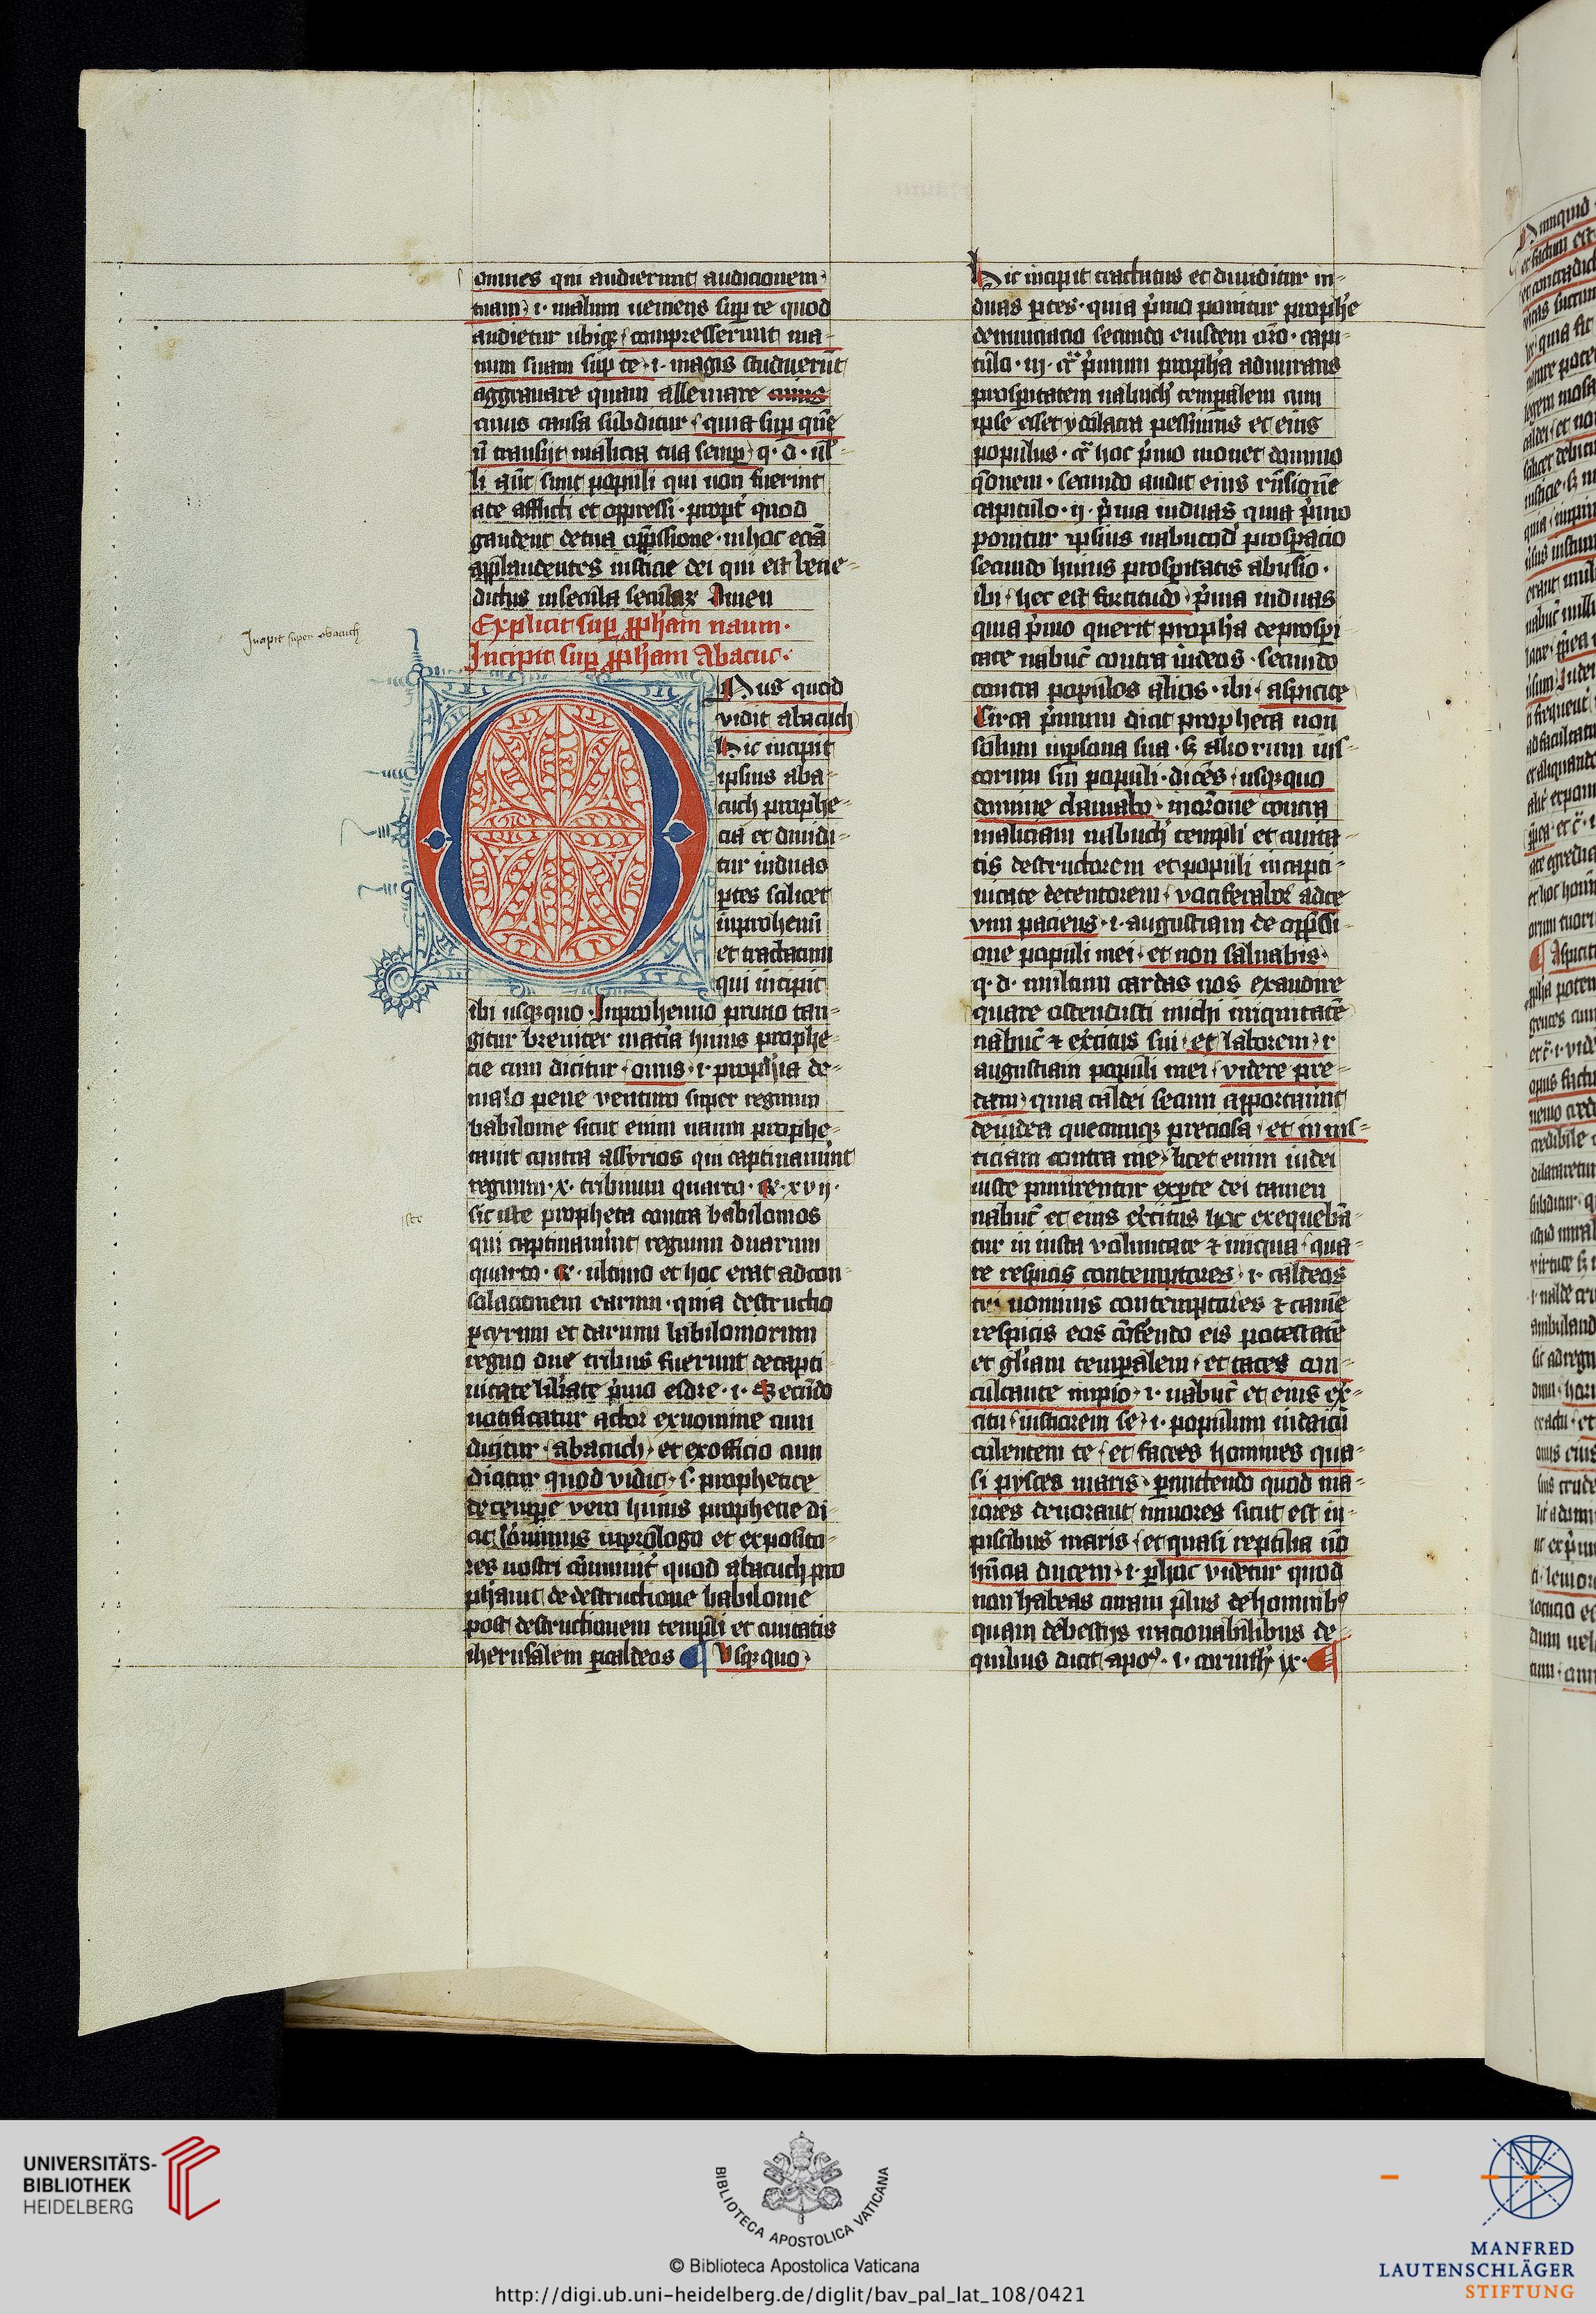 omnes qui audierunt audicionem
tuam i. malum ueniens sup te quod
audietur ubiqz compresserunt ma-
num suam sup te i. magis studuerūt
aggrauare quam alleuiare cuius
cuius causa subditur quia sup quē
n̄ transijt malicia tua semp q. d. nl-
li aūt sunt populi qui non fuerint
a te afflicti et oppressi. propt̓ quod
gaudent de tua opp̄ssione. in hoc eciā
applaudentes iusticie dei qui est bene-
dictus in secula seculaꝝ Amen
Explicit sup ꝓpham naum.
Incipit sup ꝓpham Abacuc.
Incipit super abacuch
Onus quod
vidit abacuch
Hic incipit
ipsius aba-
cuch prophe-
cia et diuidi-
tur in duas
ꝑtes scilicet
in prohemiū
et tractatum
qui incipit
ibi usqzquo. In prohemio primo tan-
gitur breuiter mat̓ia huius prophe-
cie cum dicitur onus i. proph̓ia de
malo pene venturo super regnum
babilonie sicut enim naum prophe-
tauit contra assyrios qui captiuauerunt
regnum .x. tribuum quarto. R. xvij.
sic iste propheta contra babilonios
iste
qui captiuauerunt regnum duarum
quarto. R. ultimo et hoc erat ad con-
solacionem earum. quia destructo
ꝑ cyrum et darium babiloniorum
regno due tribus fuerunt de capti-
uitate lib̓ate p̓mo esdre. i. Secūdo
notificatur actor ex nomine cum
dicitur abacuch et ex officio cum
dicitur quod vidit s. prophetice
de tempe vero huius prophetie di-
cit Ieronimus in prologo et exposito-
res nostri cōmunit̓ quod abacuch pro
phauit de destructione babilonie
post destructionem templi et ciuitatis
iherusalem ꝑ caldeos ¶ Vsqzquo
Hic incipit tractatus et diuiditur in
duas ꝑtes. quia p̓mo ponitur prophe
denunciacio secundo eiusdem or̄o. capi-
tulo. iij. c̓ p̓mum propha admirans
prosperitatem nabuch̓ temporalem cum
ipse esset ydolatra pessimus et eius
populus. c̓ hoc p̓mo mouet domino
q̄onem. secundo audit eius r̄nsionē
capitulo. ij. p̓ma in duas quia p̓mo
ponitur ipsius nabucod̓ prosꝑacio
secundo huius prosꝑitatis abusio.
ibi hec est fortitudo p̓ma in duas
quia p̓mo querit propha de prospi
tate nabuc̄ contra iudeos. secundo
contra populos alios. ibi aspicite
Circa p̓mum dicit propheta non
solum in ꝑsona sua. sꝫ aliorum ius-
torum sui populi. dicēs usqzquo
domine clamabo in or̄one contra
maliciam nabuch̓ templi et ciuita-
tis destructorem et populi in capti-
uitate detentorem vociferabor ad te
vim paciens i. angustiam de opp̄ssi-
one populi mei et non saluabis
q. d. multum tardas nos exaudire
quare ostendisti michi iniquitatē
nabuc̄ ⁊ exc̓itus sui et laborem i
angustiam populi mei videre pre-
dam quia caldei secum apportauerunt
de iudea quecumqz preciosa et in ius-
ticiam contra me licet enim iudei
iuste punirentur ex ꝑte dei tamen
nabuc̄ et eius exc̓itus hoc exequebā-
tur in iusta voluntate ⁊ iniqua qua-
re respicis contemptores i. caldeos
tui nominis contemptores ⁊ tamē
respicis eos cōferendo eis potestatē
et gl̄iam temporalem et taces con-
culcante impio i. nabuc̄ et eius ex-
citu iustiorem se i. populum iudaicū
colentem te et facies homines qua-
si pysces maris permittendo quod ma-
iores deuorant minores sicut est in
piscibus maris et quasi reptilia nō
hn̄cia ducem i. ꝑ hoc videtur quod
non habeas curam plus de hominibꝰ
quam de bestijs irracionabilibus de
quibus dicit apoꝰ. i. corinth̓ ix. ¶
UNIVERSITÄTS-
BIBLIOTHEK
HEIDELBERG
BIBLIOTECA APOSTOLICA VATICANA
© Biblioteca Apostolica Vaticana
http://digi.ub.uni-heidelberg.de/diglit/bav_pal_lat_108/0421
MANFRED
LAUTENSCHLÄGER
STIFTUNG